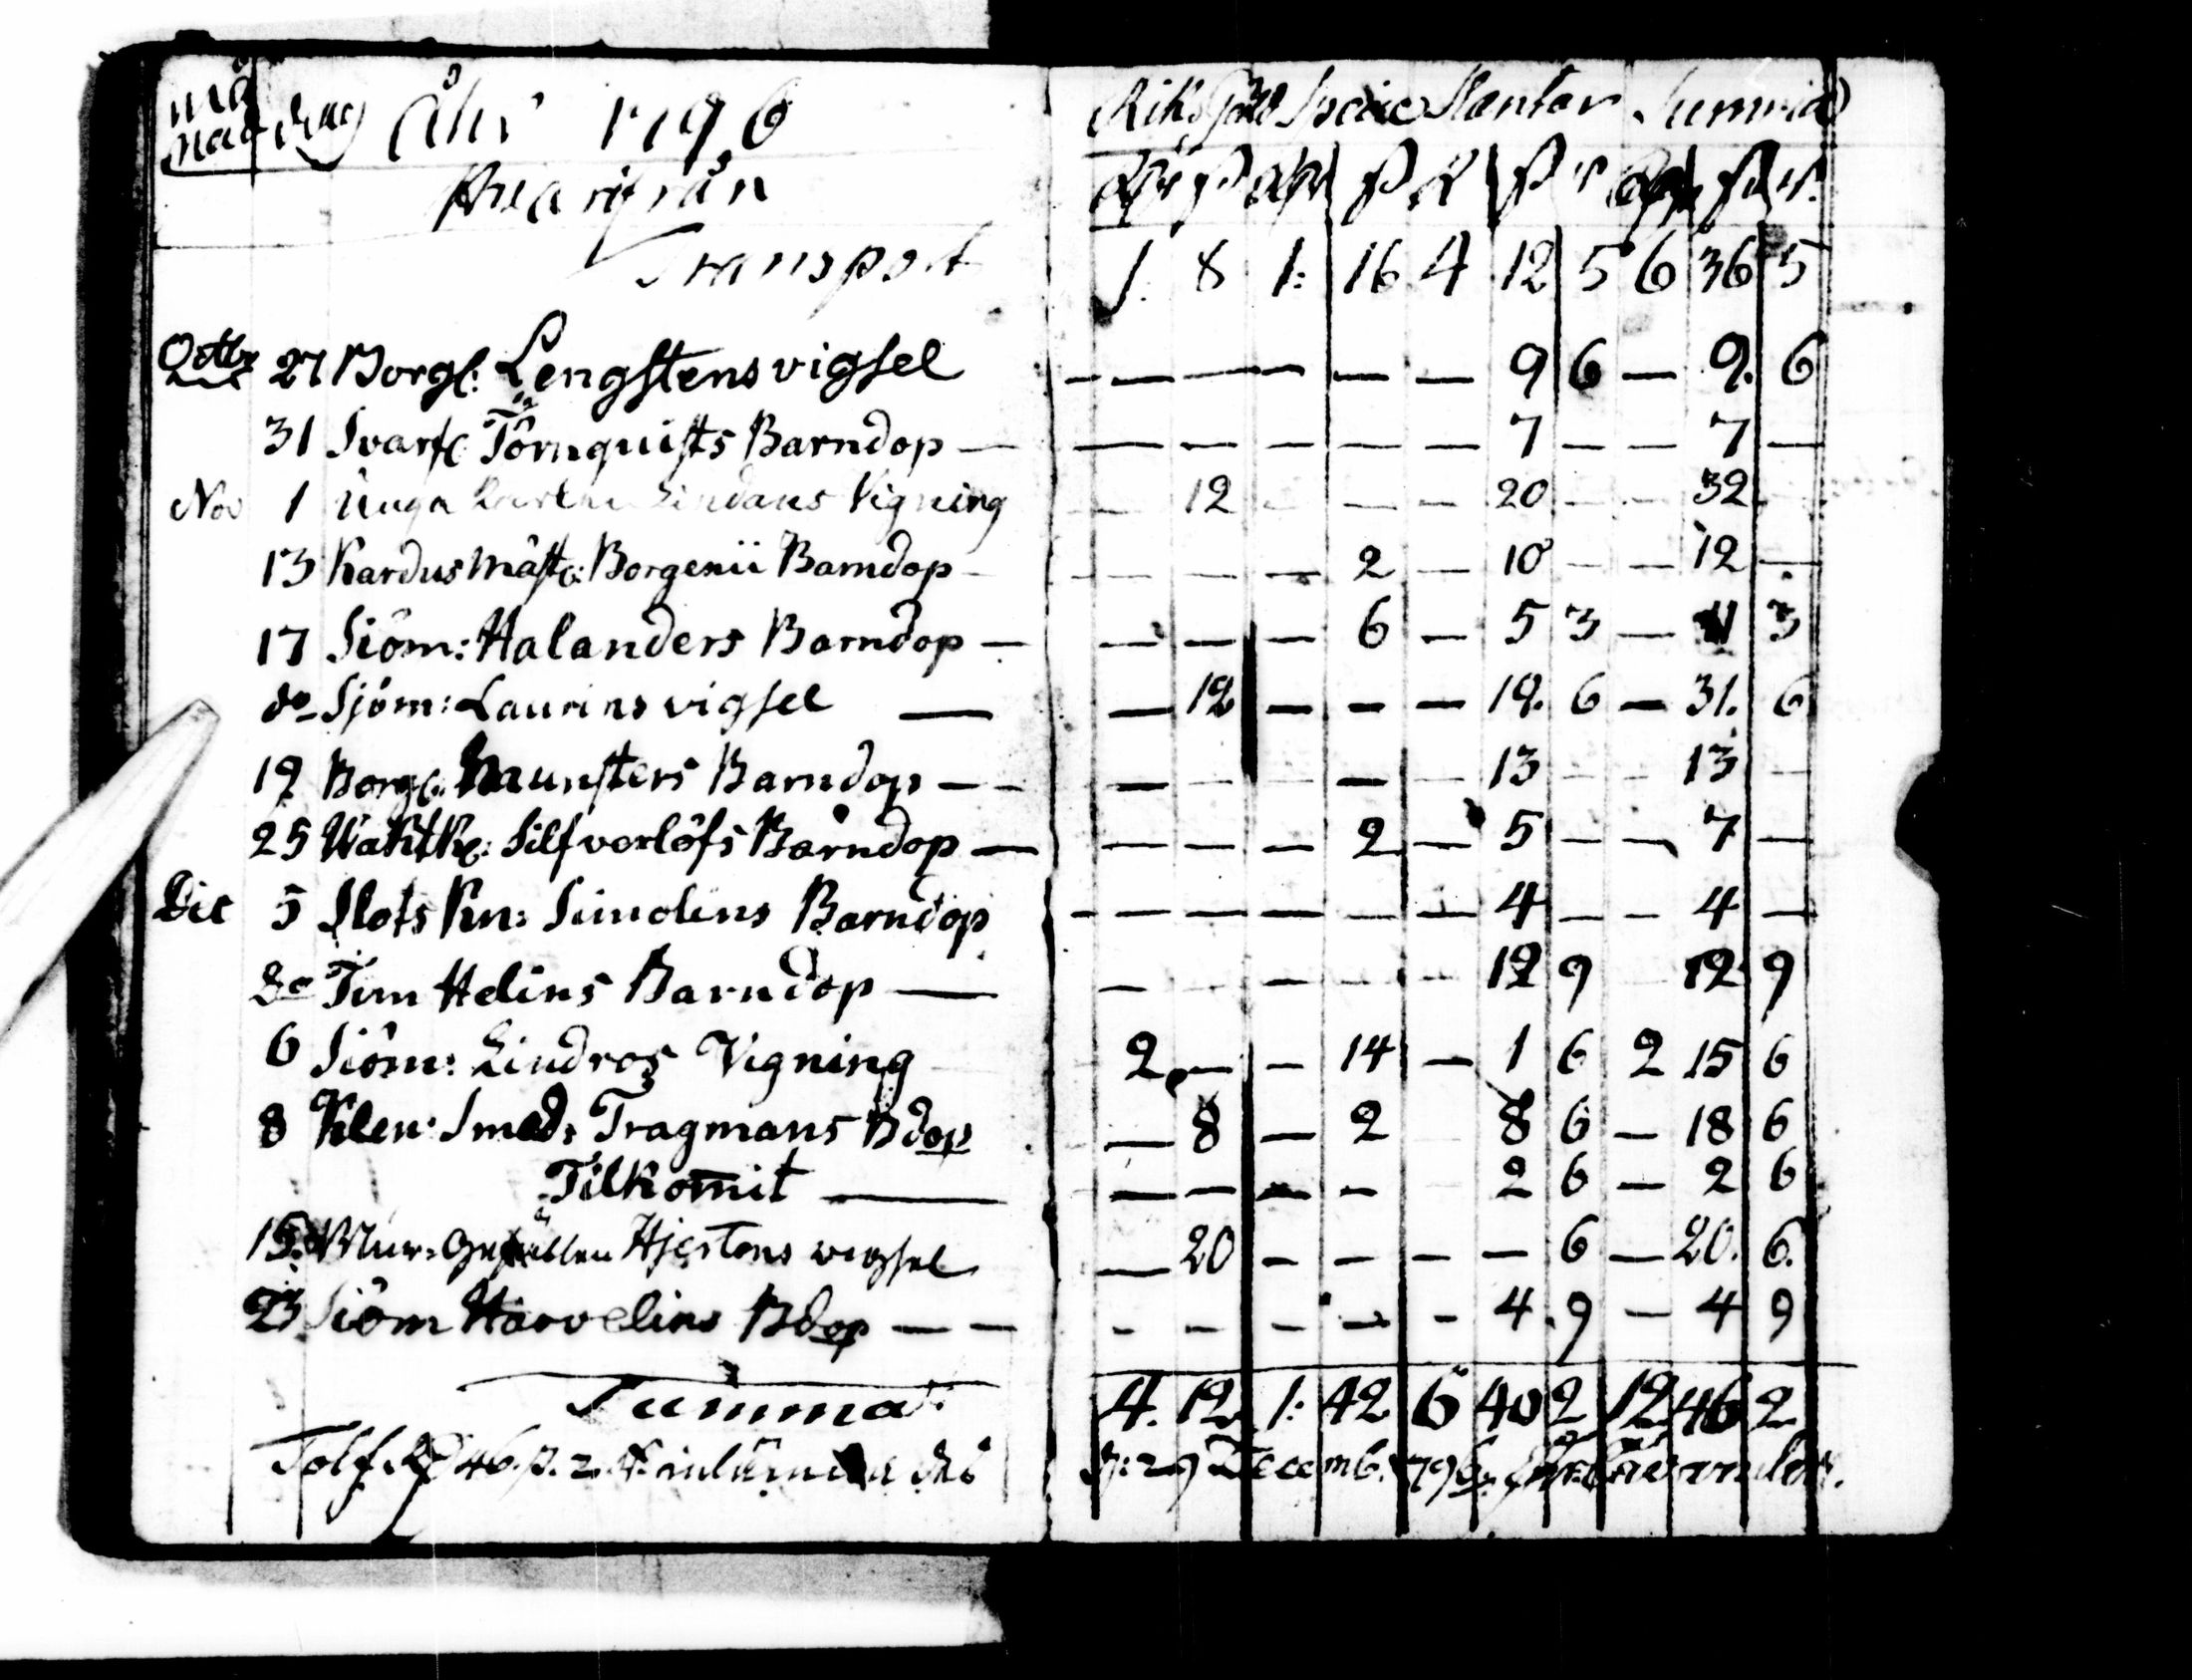 Må
nad dag Åhr 1796 Riksgäld Specie Slantar Summa
Hvarifrån
Transport 1. 8 1: 16 4 12 5 6 36 5
Octbr 27 Borg: Lengstens vigsel — — — — — — 9 6 — 9. 6
31 Svarf: Törnquists Barndop — — — — — — 7 — — 7 —
Nov 1 Unga Lindans Vigning — 12 — — — 20 — — 32
13 Kardus Mäst: Borgenii Barndop — — — — 2 — 10 — — 12 —
17 Siöm: Halanders Barndop — — — — 6 — 5 3 — 11 3
do Sjöm: Laurins vigsel — — 12 — — — 19. 6 — 31. 6
19 Borg: Barndop — — — — — — — 13 — — 13 —
25 Wahtk: Silfverlöfs Barndop — — — — 2 — 5 — — 7 —
Dec 5 Slots Kn: Simolins Barndop — — — — — — 4 — — 4 —
do Tim Helins Barndop — — — — — — 12 9 12 9
6 Siöm: Lindros Vigning 2 — — 14 — 1 6 2 15 6
8 Klen: Smed: Tragmans Bdop — 8 — 2 8 6 — 18 6
Tilkom̅it — — — — — 2 6 — 2 6
15 Mur: Gesällen Hjestens vigsel — 20 — — — — 6 — 20. 6.
23 Siöm Harvelins Bdop — — — — — — — 4 9 — 4 9
Summa: 4. 12 1: 42 6 40 2 12 46 2
Tolf Rd 46 ß. 2 r. d: 29 Decemb. 1796.